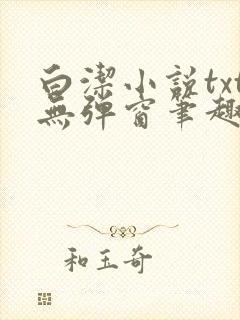 白潔小説txt
無彈窗筆趣
和玉奇